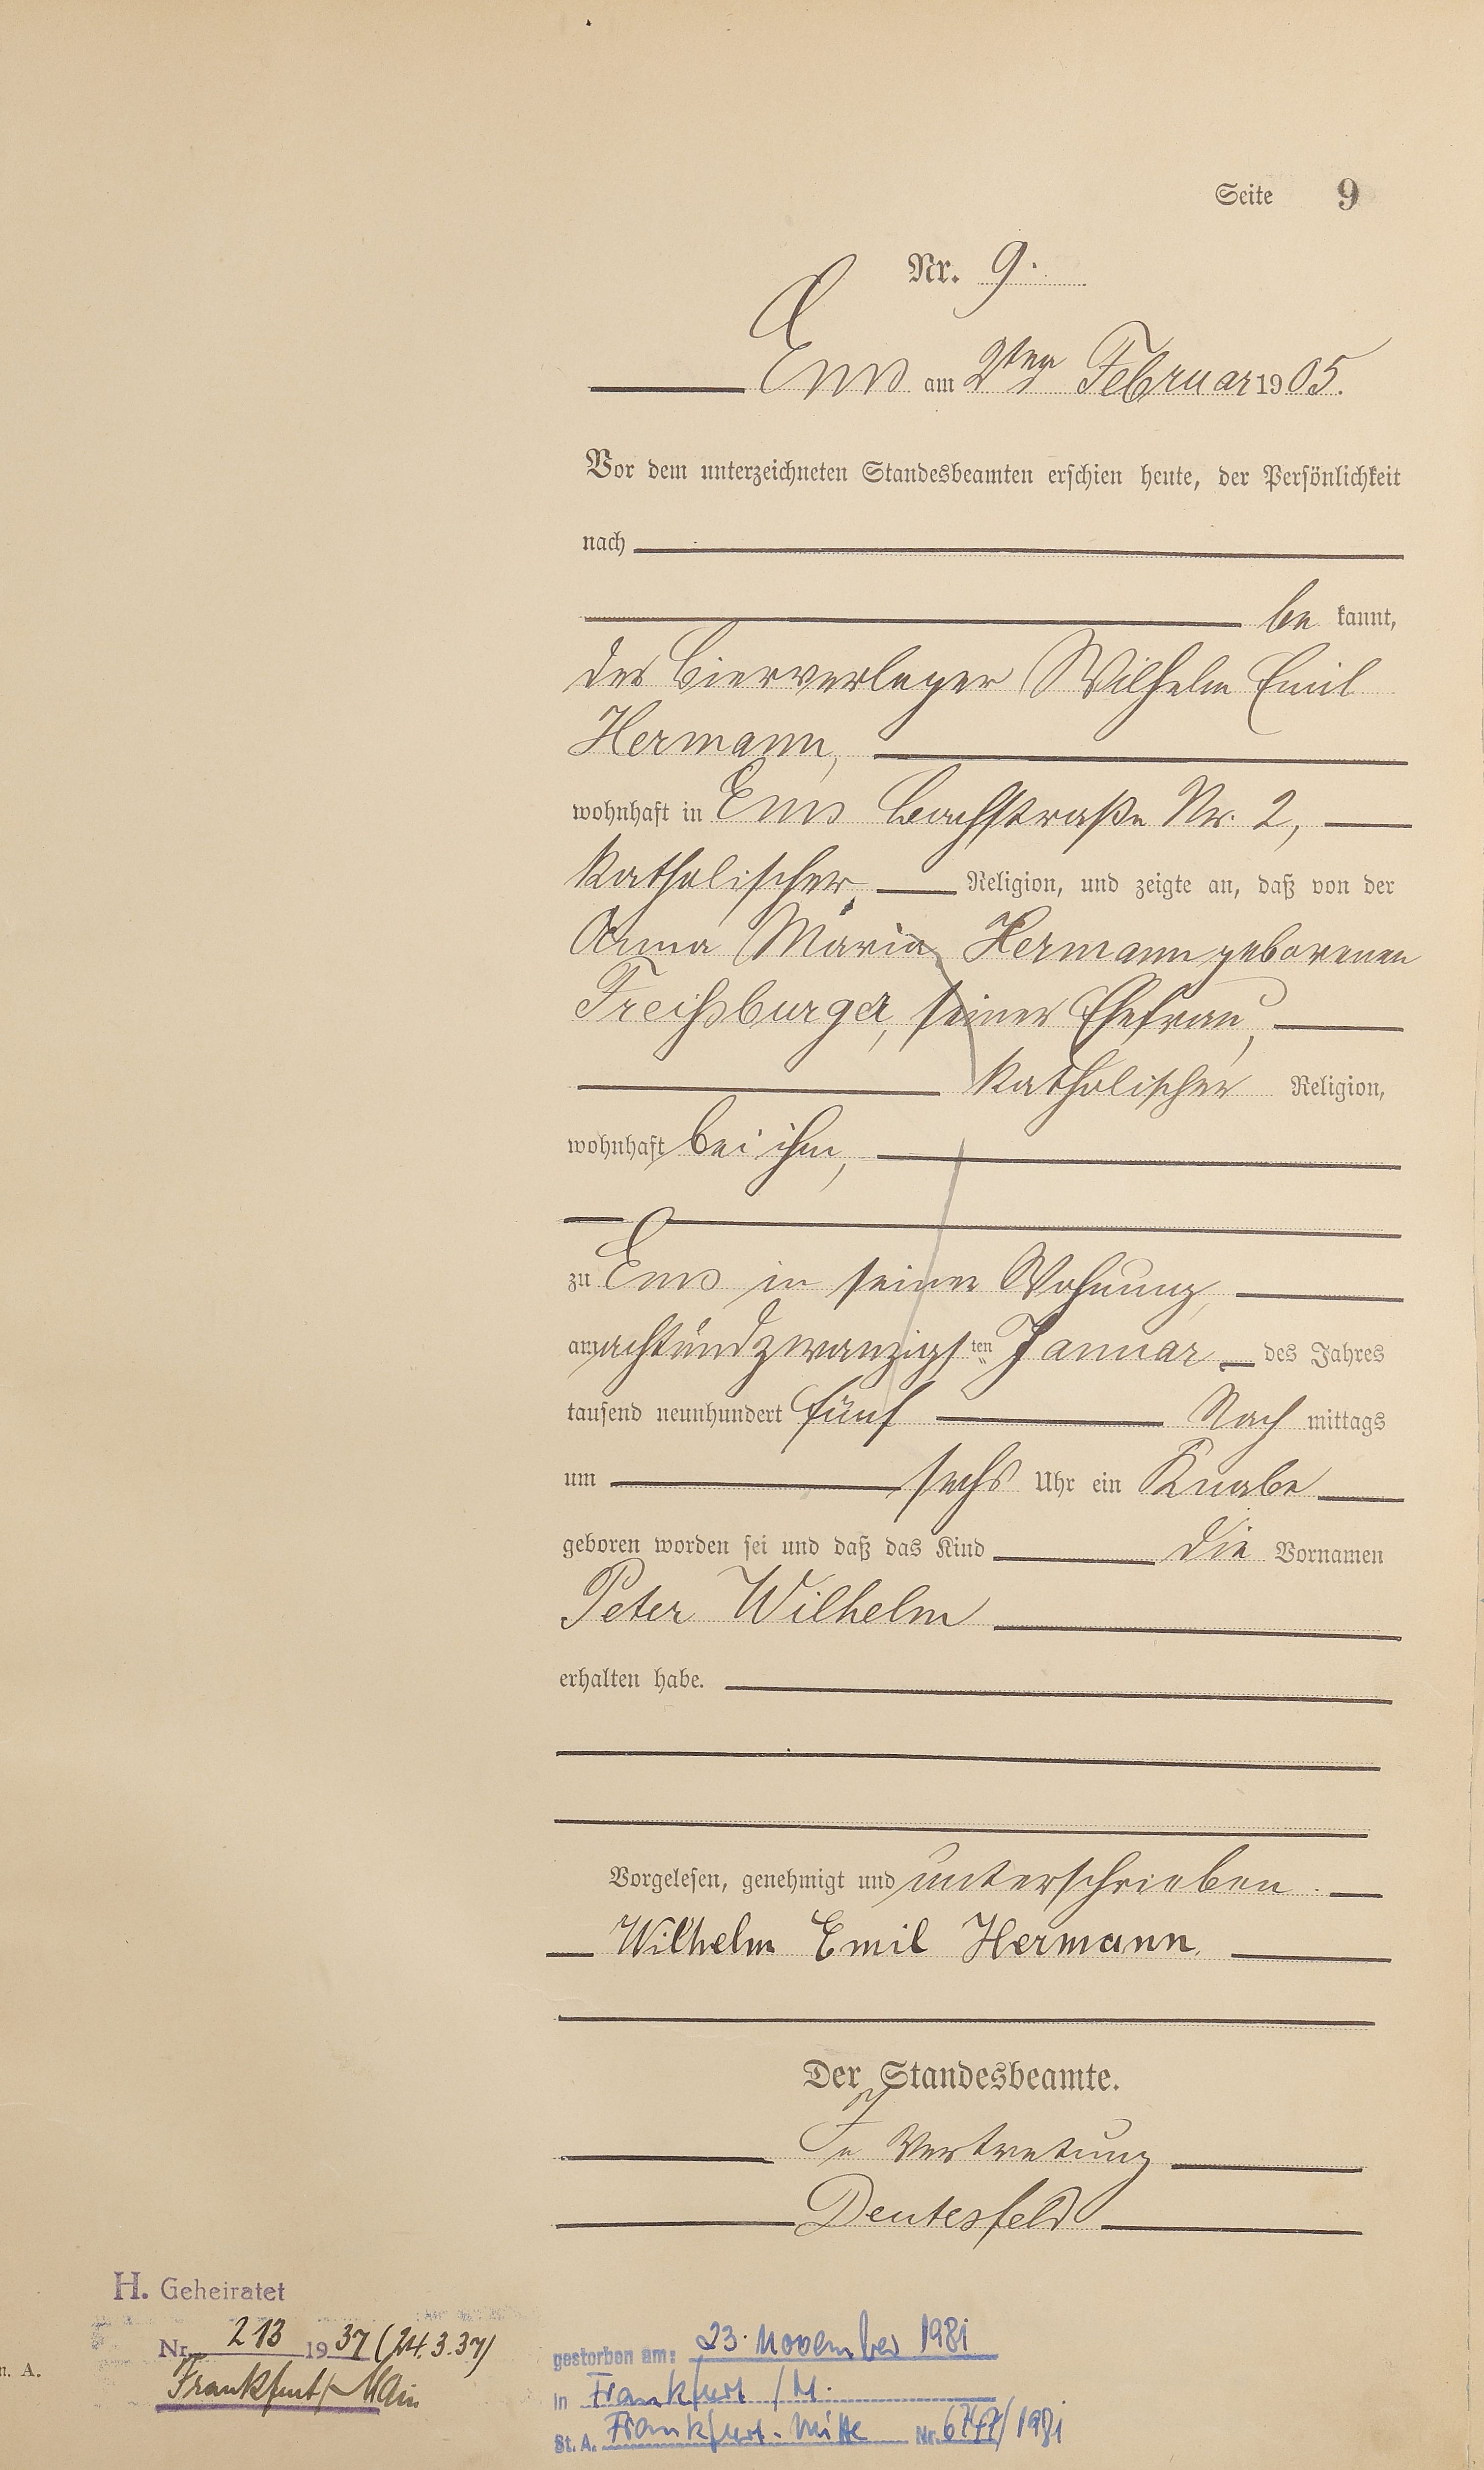 Seite 9
Nr. 9.
Ems am 2ten Februar 1905.
Vor dem unterzeichneten Standesbeamten erschien heute, der Persönlichkeit
nach
bekannt,
der Bierverleger Wilhelm Emil
Hermann,
wohnhaft in Ems Bachstraße Nr. 2,
katholischer Religion, und zeigte an, daß von der
Anna Maria Hermann geborenen
seiner Ehefrau,
katholischer Religion,
wohnhaft bei ihm,
zu Ems in seiner Wohnung,
am achtundzwanzigsten Januar des Jahres
tausend neunhundert fünf Nachmittags
um sechs Uhr ein Knabe
geboren worden sei und daß das Kind die Vornamen
Peter Wilhelm
erhalten habe.
Vorgelesen, genehmigt und unterschrieben.
Wilhelm Emil Hermann.
Der Standesbeamte.
In Vertretung
Deutesfeld
H. Geheiratet
Nr. 213 1937 (24.3.37)
Frankfurt/Main
n. A.
gestorben am: 23. November 1981
in Frankfurt /M.
St. A. Frankfurt-Mitte Nr. /1981